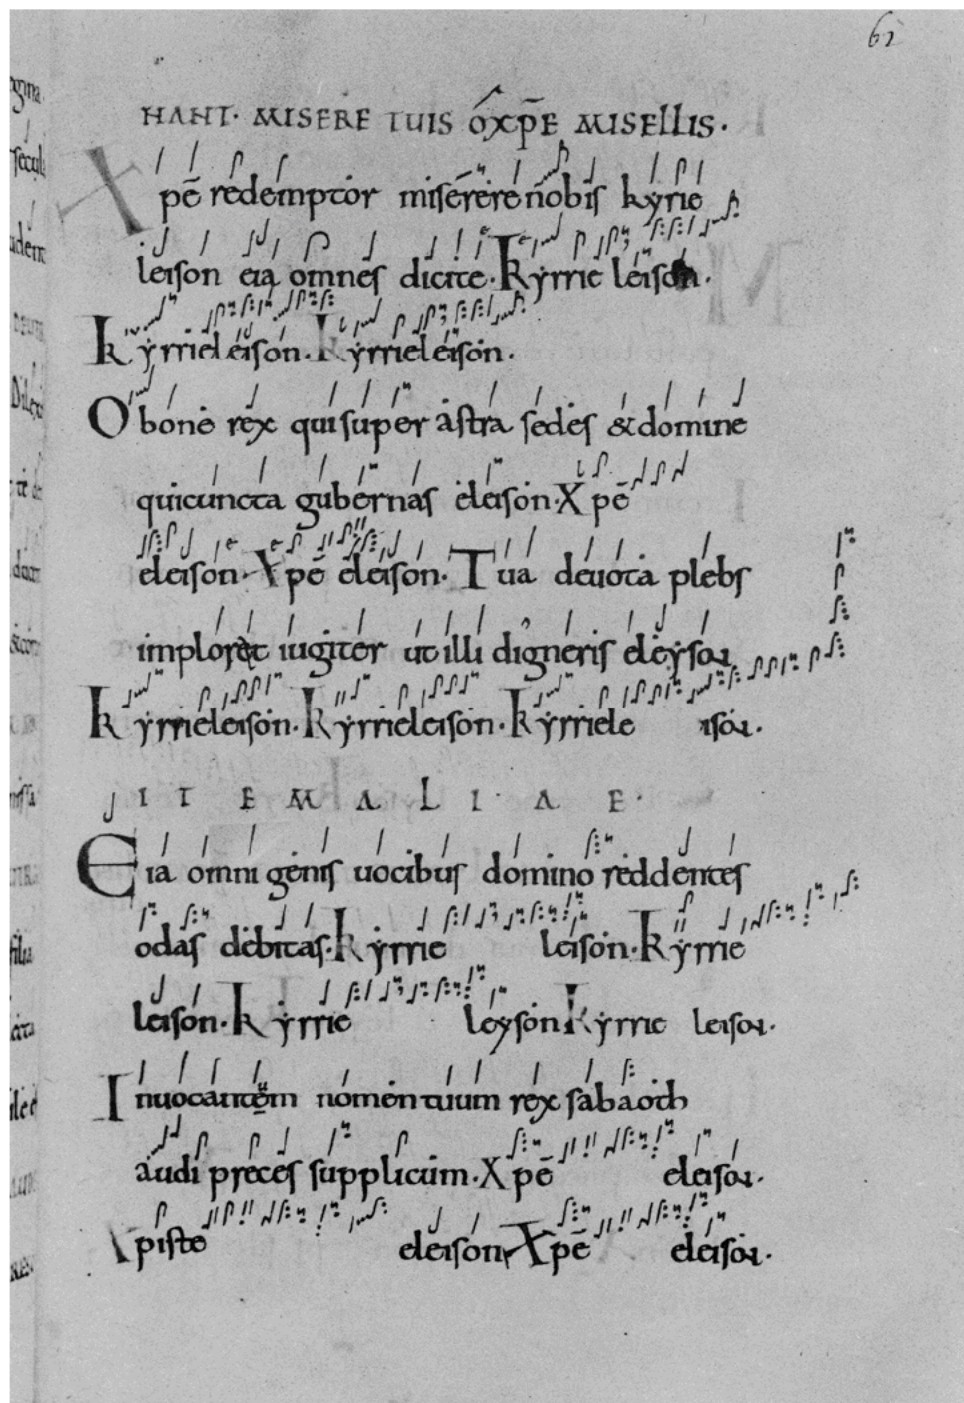 62
NANT· MISERE TUIS O XPE MISELLIS·
Xpē redemptor miserere nobis kyrie
leison eia omnes dicite· Kyrrie leison·
Kyrrieleison· Kyrrieleison·
O bone rex qui super astra sedes & domine
qui cuncta gubernas eleison· Xpē
eleison· Xpē eleison· Tua devota plebs
imploret iugiter ut illi digneris eleyson
Kyrrieleison· Kyrrieleison· Kyrriele ison·
ITEM ALIAE·
Eia omnigenis vocibus domino reddentes
odas debitas· Kyrrie leison· Kyrrie
leison· Kyrrie leyson Kyrrie leison·
Invocantem nomen tuum rex sabaoth
audi preces supplicum· Xpē eleison·
Xpiste eleison Xpē eleison·